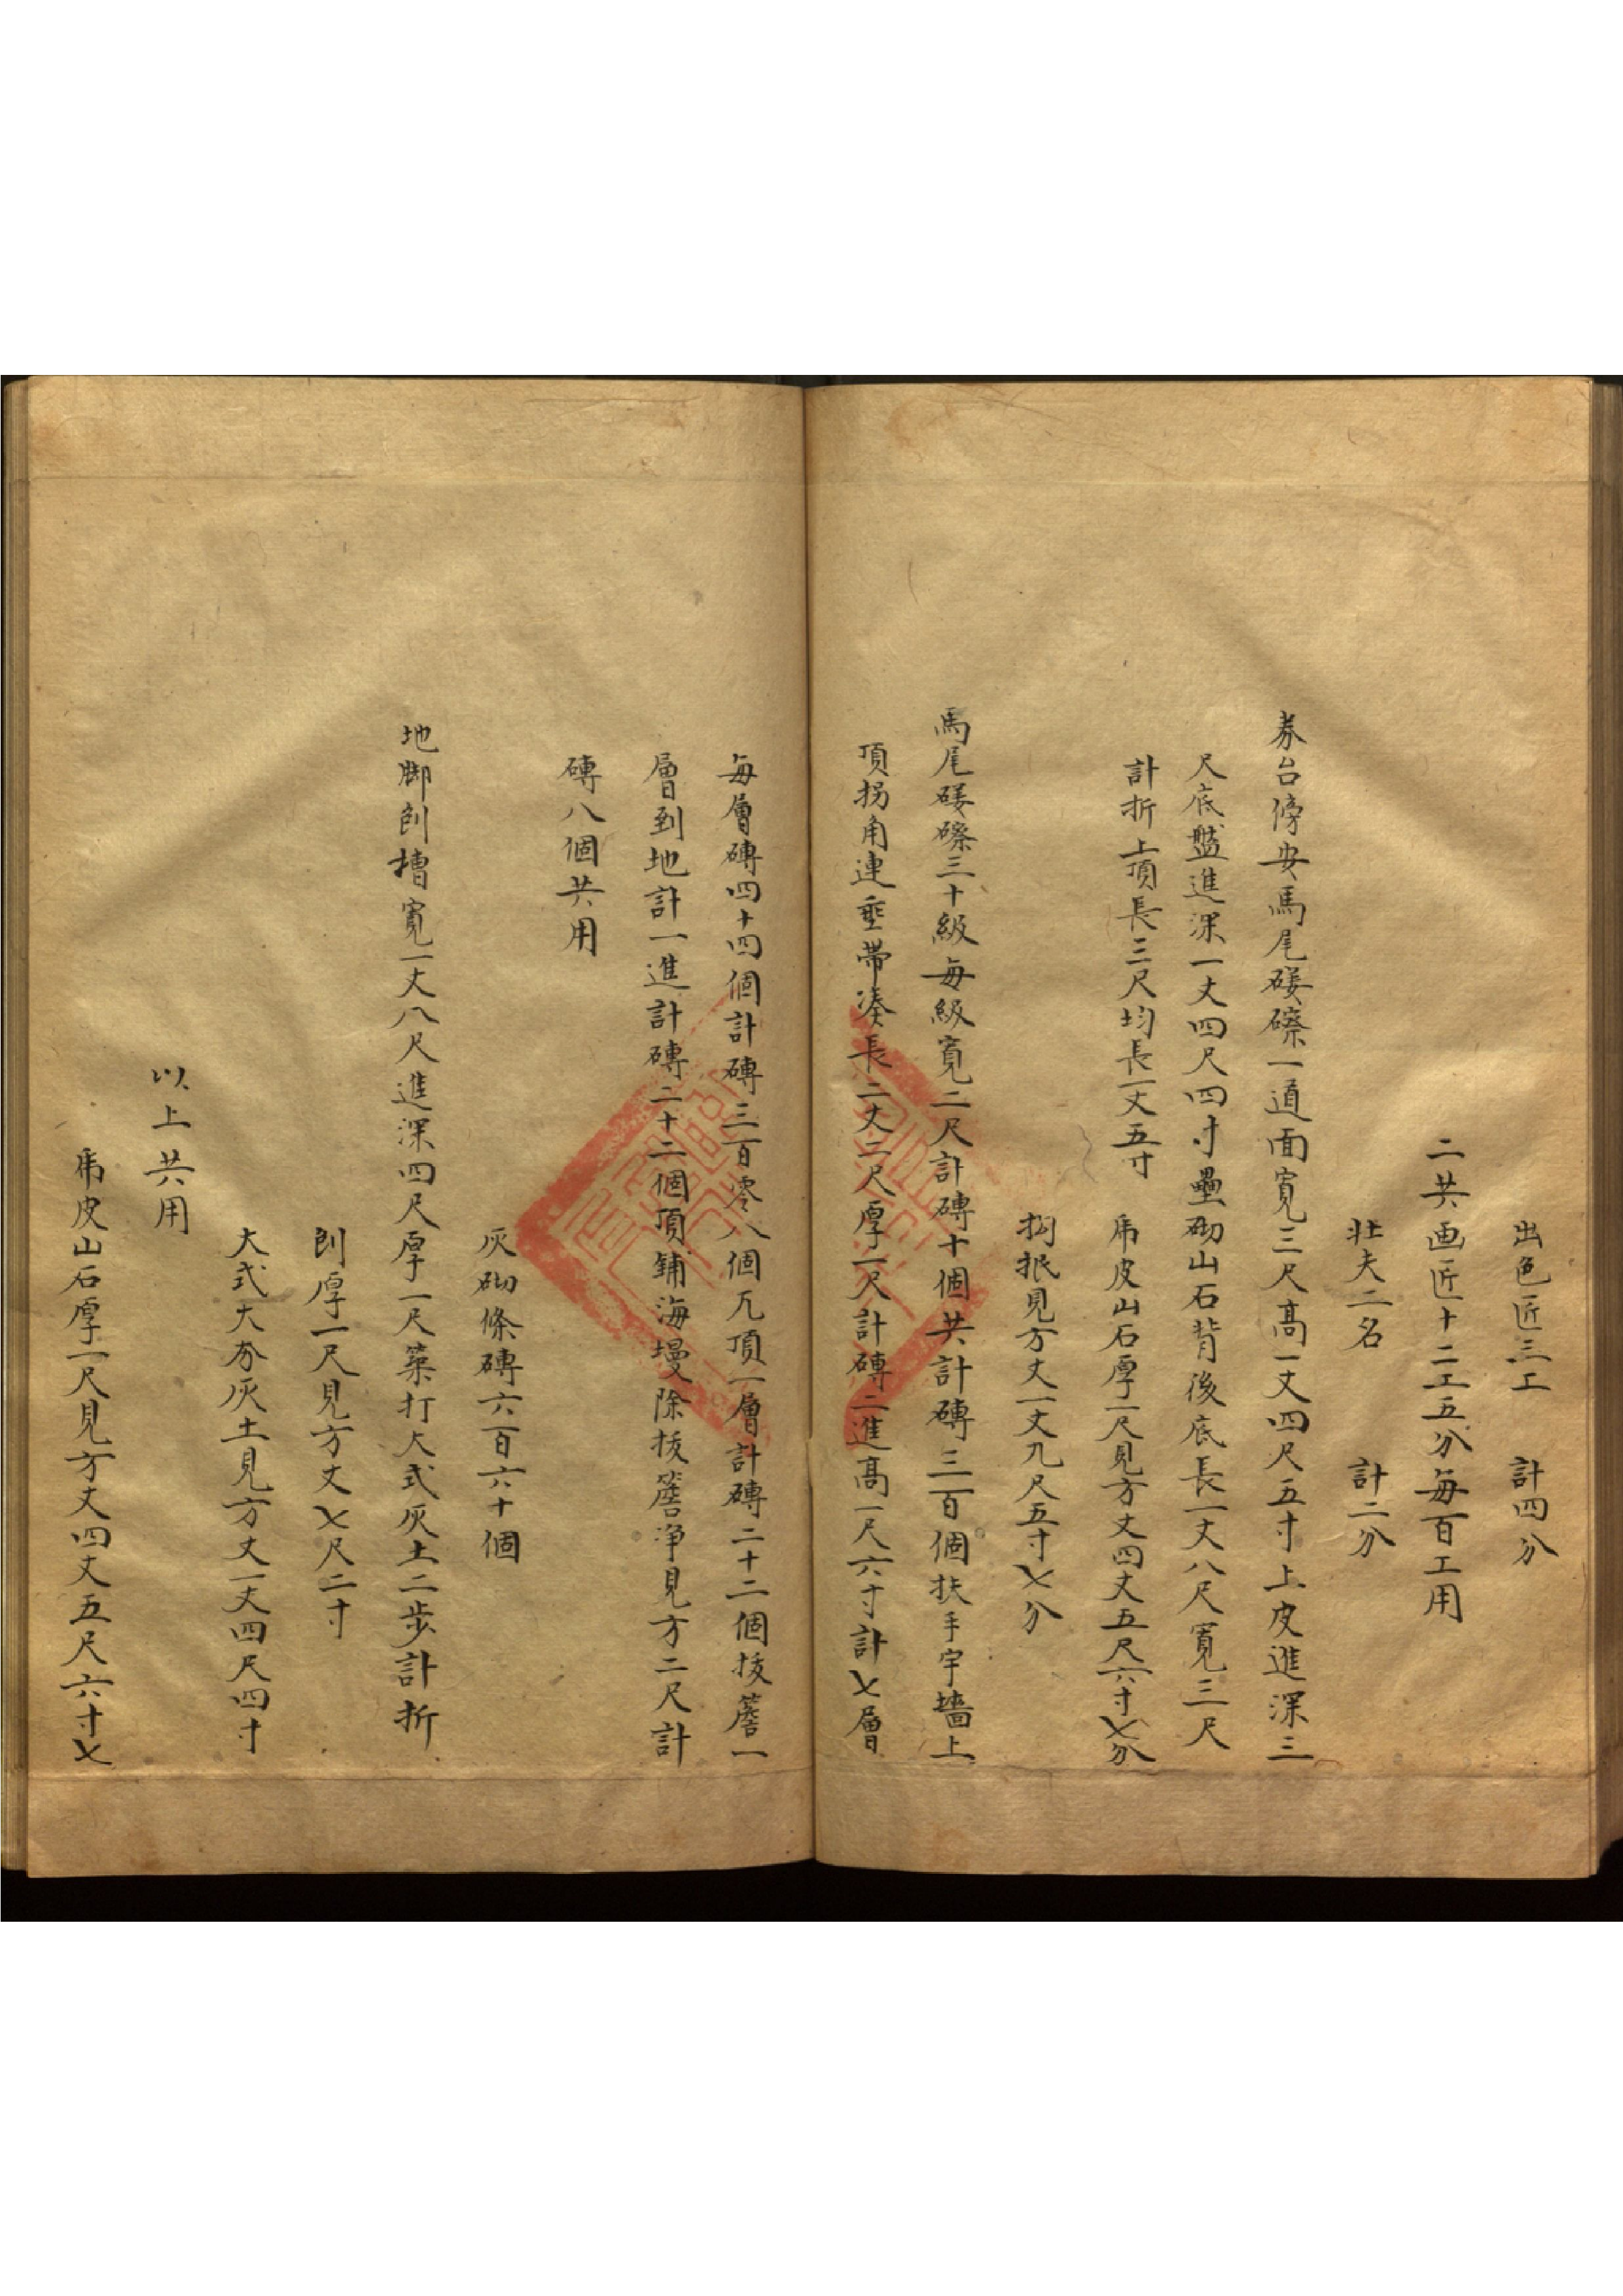 出色匠三工　計四分
二共画匠十二工五分每百工用
壮夫二名　計二分
券台傍安馬尾礓磜一道面寬三尺高一丈四尺五寸上皮進深三
尺底盤進深一丈四尺四寸壘砌山石背後底長一丈八尺寬三尺
計折上頂長三尺均長一丈五寸
虎皮山石厚一尺見方丈四丈五尺六寸七分
抅抿見方丈一丈九尺五寸七分
馬尾礓磜三十級每級寬二尺計磚十個共計磚三百個扶手宇墻上
頂拐角連垂帶湊長二丈二尺厚一尺計磚二進高一尺六寸計七層
每層磚四十四個計磚三百零八個兀頂一層計磚二十二個拔簷一
層到地計一進計磚二十二個頂鋪海墁除拔簷淨見方二尺計
磚八個共用
灰砌條磚六百六十個
地脚刨槽寬一丈八尺進深四尺厚一尺築打大式灰土二步計折
刨厚一尺見方丈七尺二寸
大式大夯灰土見方丈一丈四尺四寸
以上共用
虎皮山石厚一尺見方丈四丈五尺六寸七